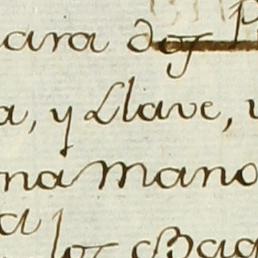 para dos
a, y Llave, y
na mano
a
los Bag